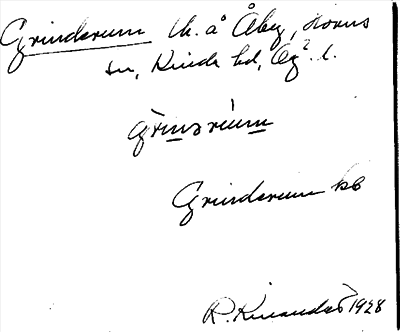 Grinderum lh. å Åby, Horns
sn, Kinda hd, Ög. l.
grınərúm
Grinderum kb
R. Kinander 1928